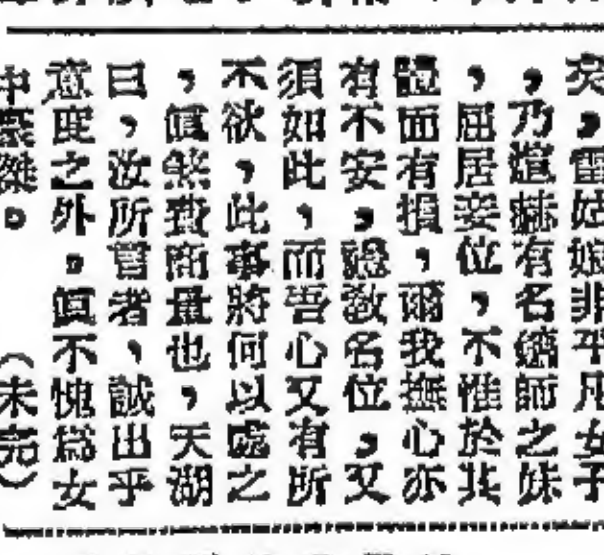 矣，雷姑娘非平凡女子
，乃煊赫有名鏢師之妹
，屈居妾位，不惟於其
體面有損，爾我撫心亦
有不安，證敵名位，又
須如此，而吾心又有所
不欲，此事將何以處之
，眞煞費商量也，天湖
曰，汝所言者，誠出乎
意度之外。眞不愧爲女
中豪傑。（未完）